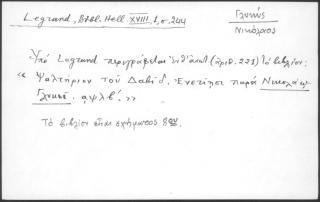 Legrand, Bibl. Hell. XVIII, 1, σ. 244
Γλυκύς
Νικόλαος
Ὑπὸ Legrand περιγράφεται (ἀριθ. 221) τὸ βιβλίον:
« Ψαλτήριον τοῦ Δαβίδ, Ἐνετίησι παρὰ Νικολάῳ
Γλυκεῖ. αψλβ'. »
Τὸ βιβλίον εἶναι σχήματος 8ον.